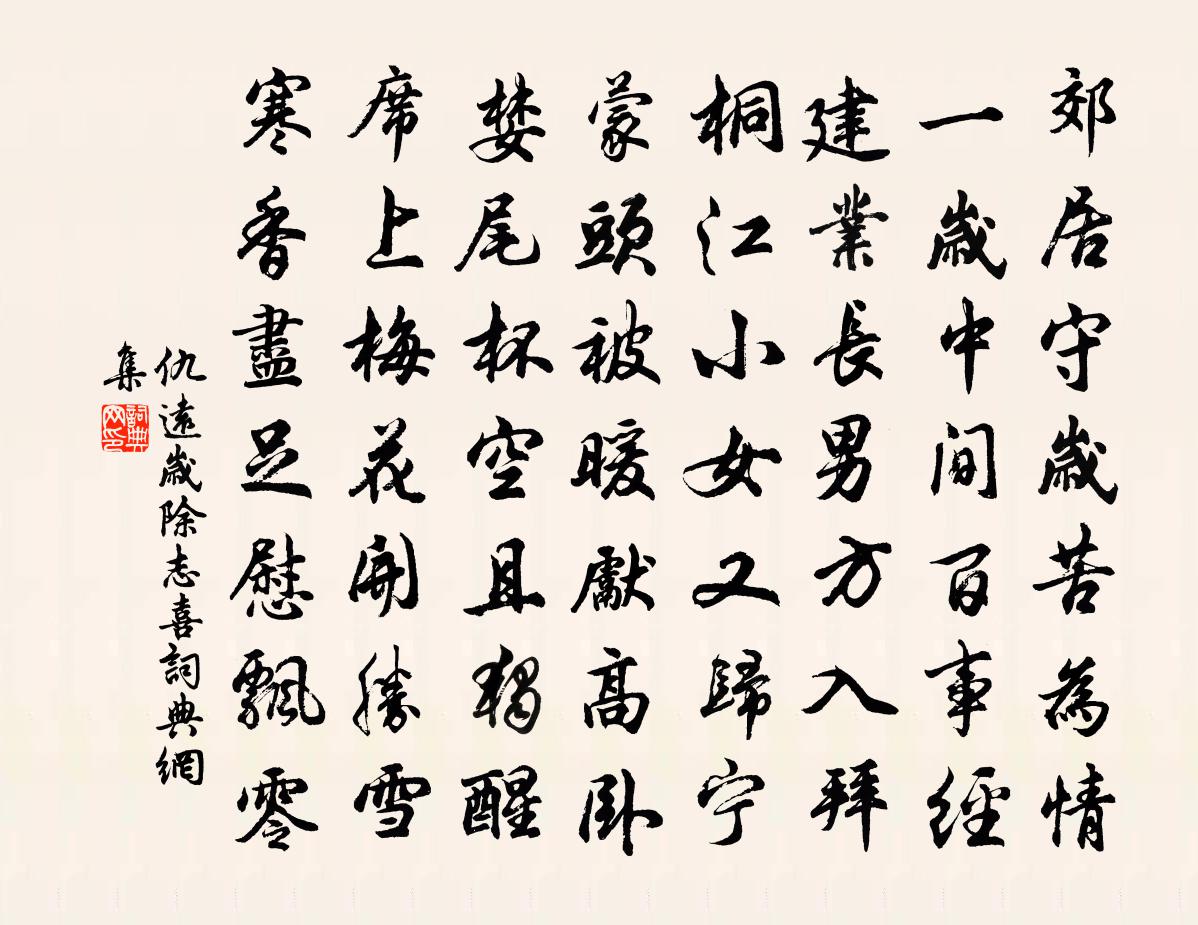 郊居守歲苦為情
一歲中間百事經
建業長男方入拜
桐江小女又歸宁
蒙頭被暖獻高臥
婪尾杯空且獨醒
席上梅花開勝雪
寒香盡足慰飄零
仇遠歲除志喜詞典網
集
詞典
网印